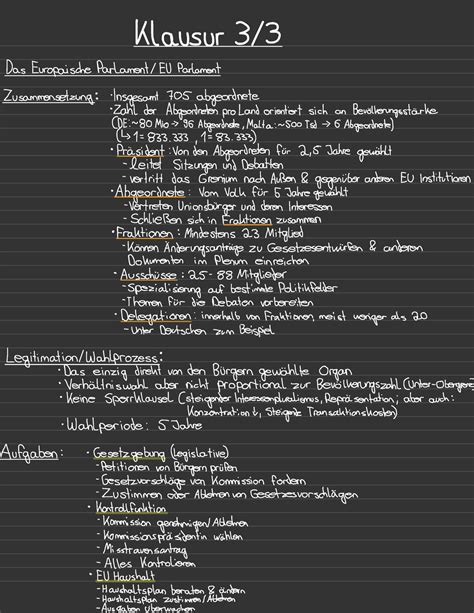 Klausur 3/3
Das Europäische Parlament/EU Parlament
Zusammensetzung: · Insgesamt 705 abgeordnete
· Zahl der Abgeordneten pro Land orientert sich an Bevölkerungsstärke
(DE:~80 Mio -> 96 Abgeordnete, Malta:~500 Tsd -> 6 Abgeordnete)
(↳ 1 = 833.333 , 1 = 83.333)
· Präsident: Von den Abgeordneten für 2,5 Jahre gewählt
- leitet Sitzungen und Debatten
- vertritt das Gremium nach Außen & gegenüber anderen EU Institutionen
· Abgeordnete: Vom Volk für 5 Jahre gewählt
- Vertreten Unionsbürger und deren Interessen
- Schließen sich in Fraktionen zusammen
· Fraktionen: Mindestens 23 Mitglied
- Können Änderungsanträge zu Gesetzesentwürfen & anderen
Dokumenten im Plenum einreichen
· Ausschüsse: 25-88 Mitglieder
- Spezialisierung auf bestimmte Politikfelder
- Themen für die Debaten vorbereiten
· Delegationen: innerhalb von Fraktionen, meist weniger als 20
- Unter Deutschen zum Beispiel
Legitimation/Wahlprozess:
· Das einzig direkt von den Bürgern gewählte Organ
· Verhältniswahl aber nicht proportional zur Bevölkerungszahl (Unter-Obergrenze)
· Keine Sperrklausel (steigender Interessenpluralismus, Repräsentation; aber auch:
Konzentration ↓, Steigende Transaktionskosten)
· Wahlperiode: 5 Jahre
Aufgaben: · Gesetzgebung (Legislative)
- Petitionen von Bürgern prüfen
- Gesetzvorschläge von Kommission fordern
- Zustimmen oder Ablehnen von Gesetzesvorschlägen
· Kontrollfunktion
- Kommission genehmigen/Ablehnen
- Kommissionspräsidentin wählen
- Misstrauensantrag
- Alles Kontrolieren
· EU Haushalt
- Haushaltsplan beraten & ändern
- Haushaltsplan zustimmen/Ablehnen
- Ausgaben Überwachen